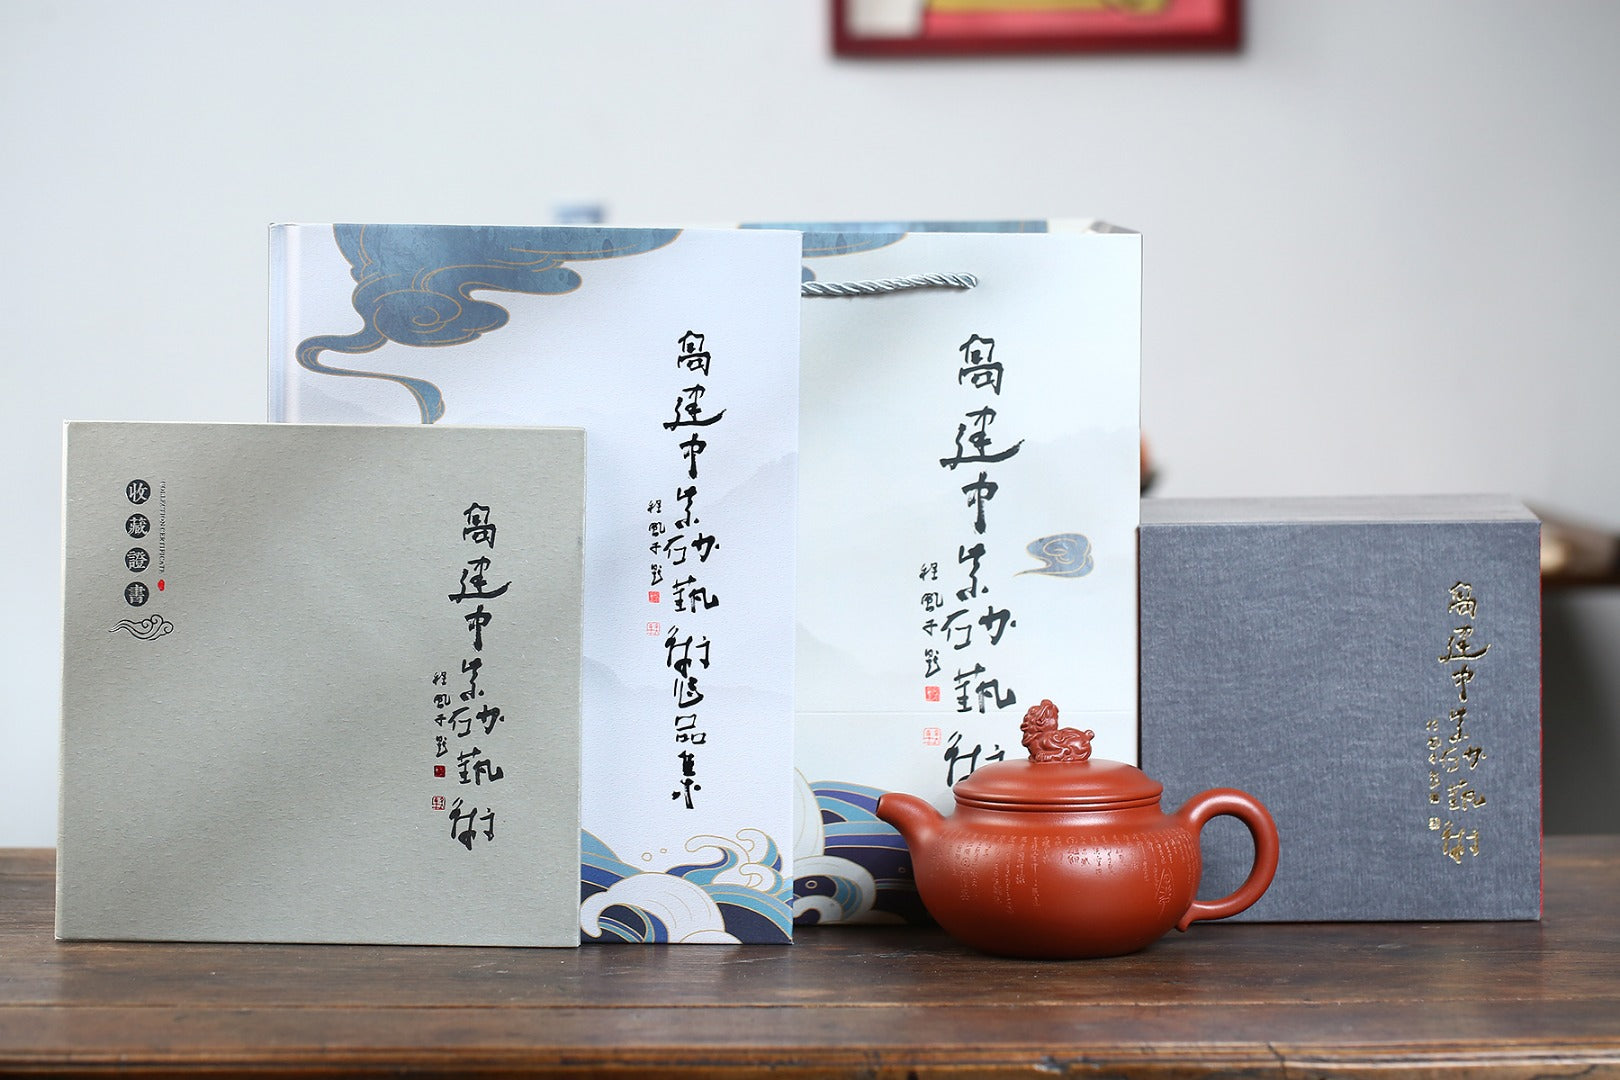 收藏證書
COLLECTION CERTIFICATE
高建中紫砂藝術
程風子題
高建中紫砂藝術作品集
程風子題
高建中紫砂藝術
程風子題
高建中紫砂藝術
程風子題